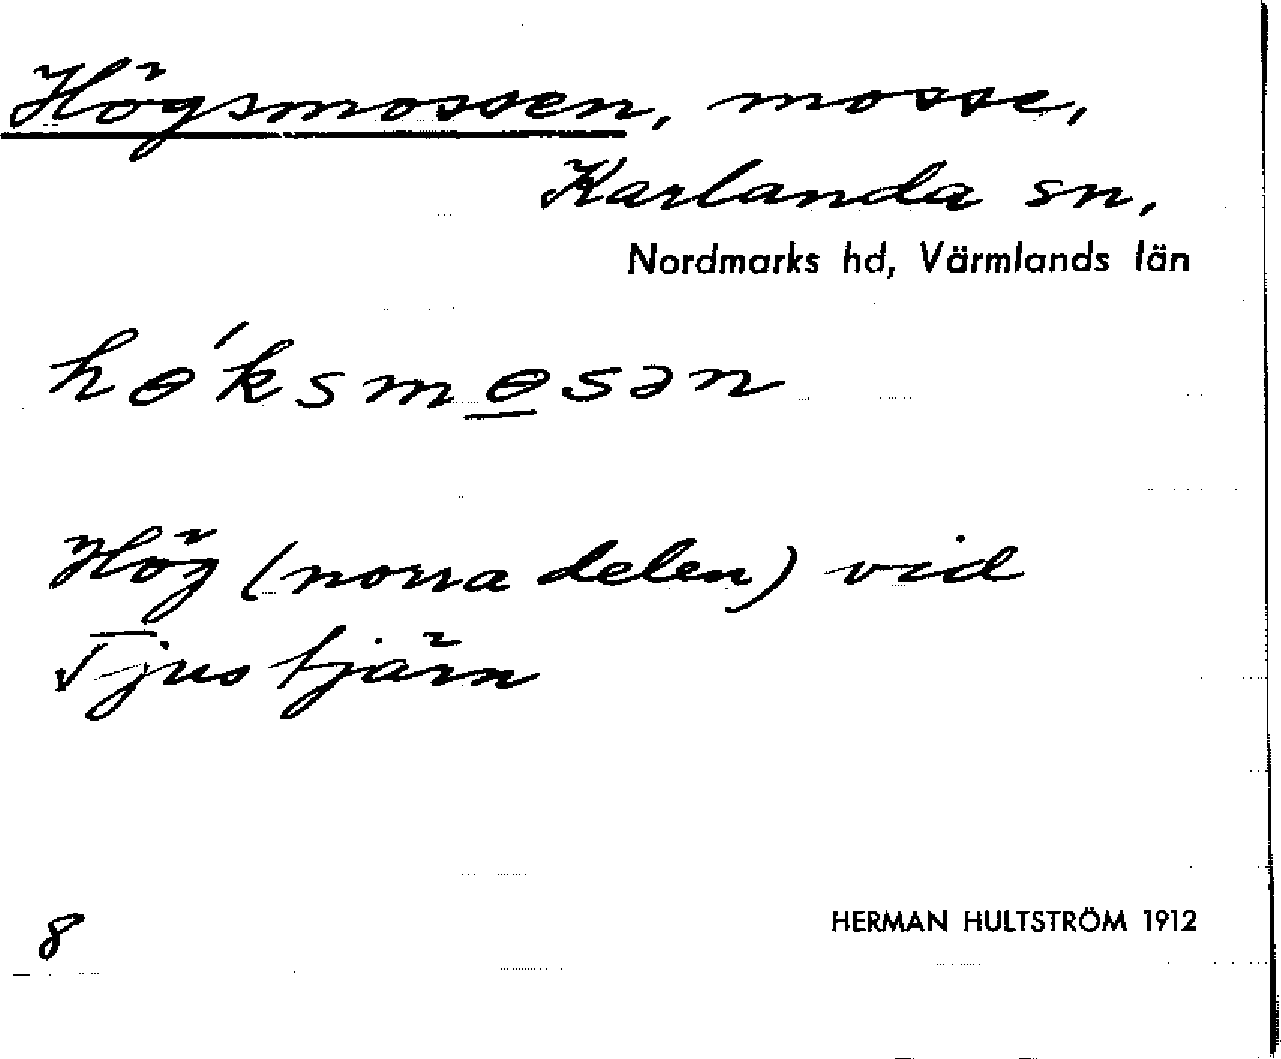 Högsmossen, mosse,
Karlanda sn,
Nordmarks hd, Värmlands län
hø´ksmɵsən
Hög (norra delen) vid
Tjustjärn
8
HERMAN HULTSTRÖM 1912